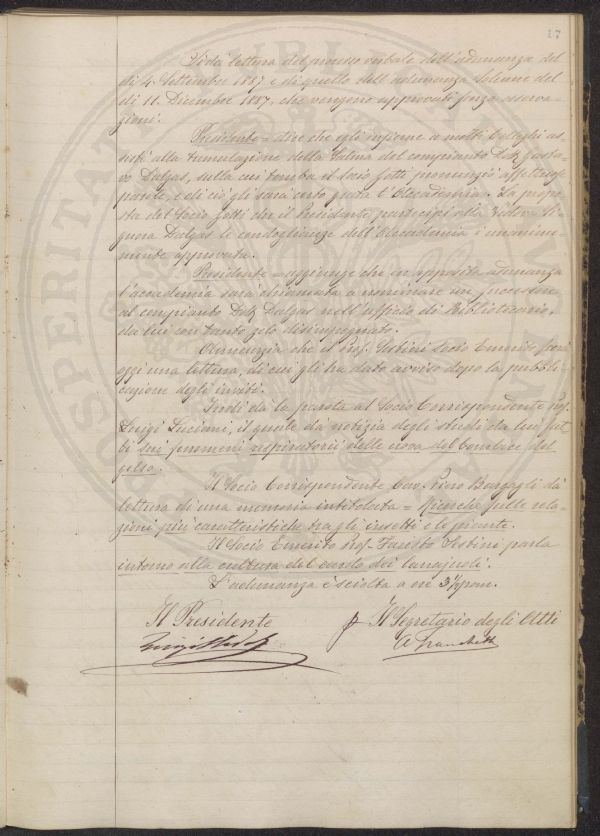 17
Si dà lettura del processo verbale dell'adunanza del
dì 4. Settembre 1887 e di quello dell'adunanza solenne del
dì 11. Dicembre 1887, che vengono approvati senza osserva-
zioni.
Presidente = dice che egli insieme a molti Colleghi as-
sistè alla tumulazione della Salma del compianto Dott. Gusta-
vo Dalgas, sulla cui tomba il Socio Gotti pronunziò affettuose
parole, e di ciò gli sarà certo grata l'Accademia. La propo-
sta del Socio Gotti che il Presidente partecipi alla Vedova Si-
gnora Dalgas le condoglianze dell'Accademia è unanime-
mente approvata.
Presidente = aggiunge che in apposita adunanza
l'accademia sarà chiamata a nominare un successore
al compianto Dott. Dalgas nell'ufficio di Bibliotecario,
da lui con tanto zelo disimpegnato.
Annunzia che il Prof. Sestini Socio Emerito farà
oggi una lettura, di cui gli ha dato avviso dopo la pubbli-
cazione degli inviti.
Indi dà la parola al Socio Corrispondente Prof.
Luigi Luciani, il quale dà notizia degli studi da lui fat-
ti sui fenomeni respiratorii delle uova del bombice del
gelso.
Il Socio Corrispondente Cav. Piero Bargagli dà
lettura di una memoria intitolata = Ricerche sulle rela-
zioni più caratteristiche tra gli insetti e le piante.
Il Socio Emerito Prof. Fausto Sestini parla
intorno alla cultura del cardo dei lanajuoli.
L'adunanza è sciolta a ore 3½ pom.
Il Presidente
Il Segretario degli Atti
A Franchetti
PROSPERITATI